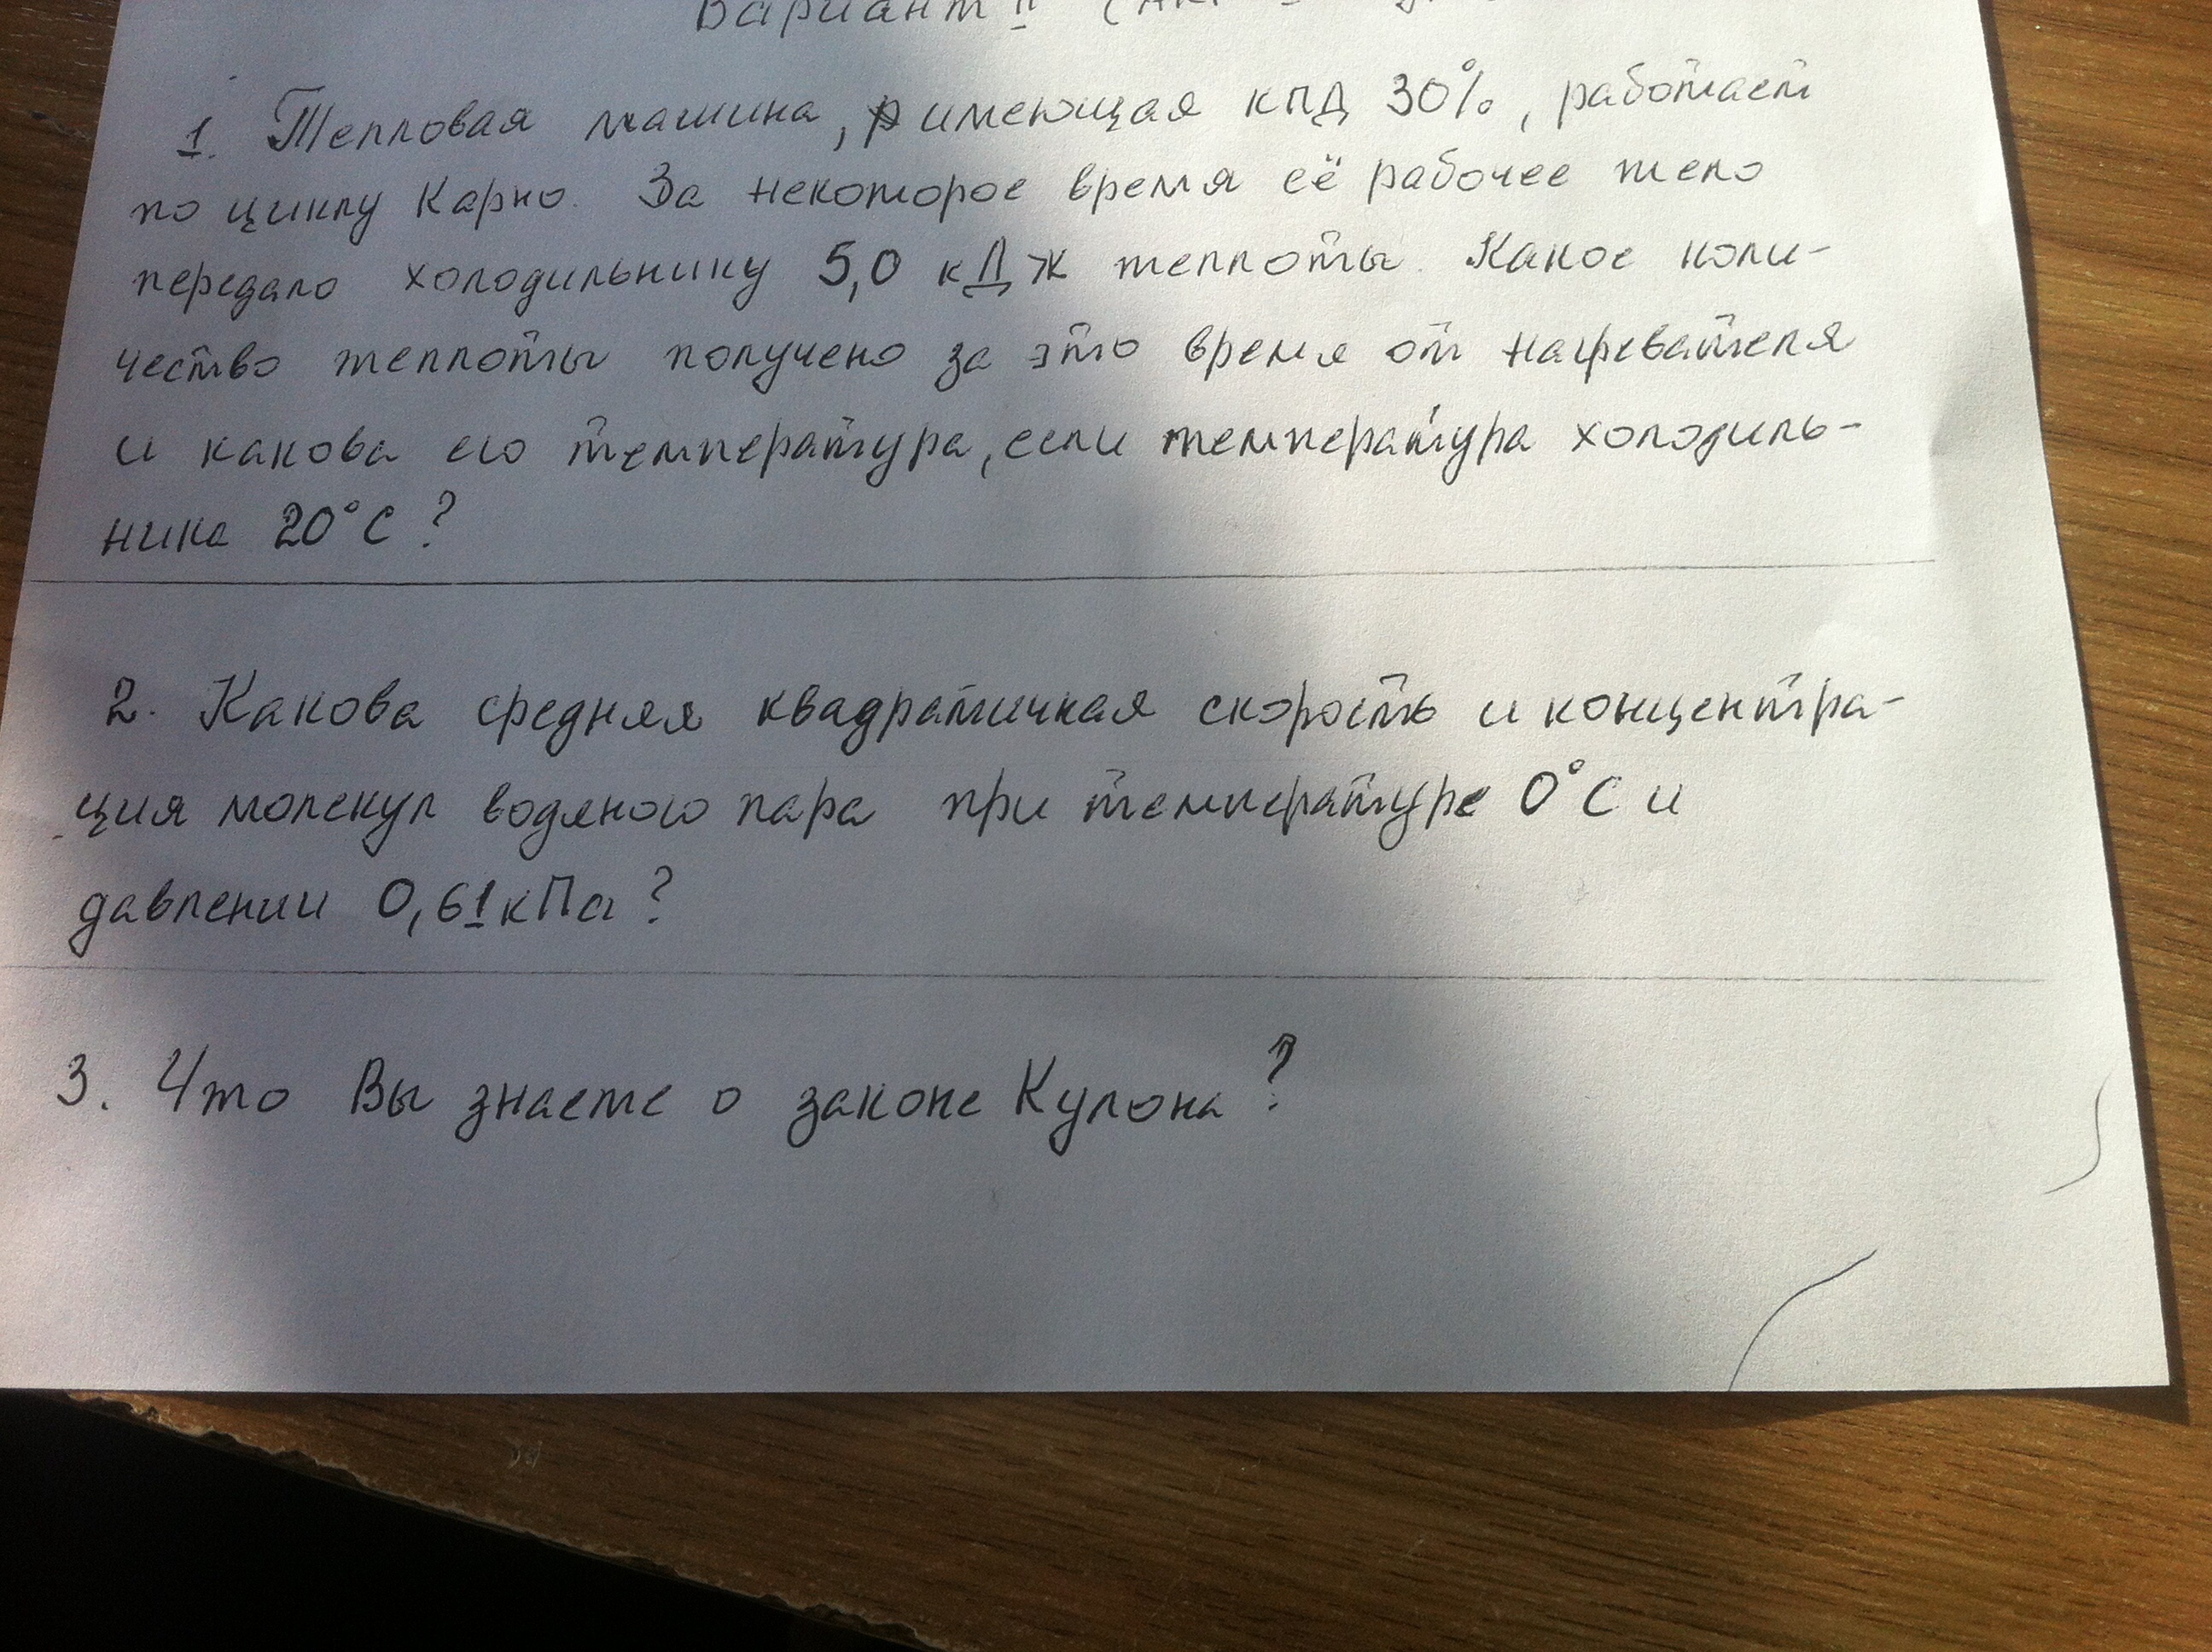 Вариант II
1. Тепловая машина, имеющая КПД 30%, работает
по циклу Карно. За некоторое время её рабочее тело
передало холодильнику 5,0 кДж теплоты. Какое коли-
чество теплоты получено за это время от нагревателя
и какова его температура, если температура холодиль-
ника 20°С?
2. Какова средняя квадратичная скорость и концентра-
ция молекул водяного пара при температуре 0°С и
давлении 0,61кПа?
3. Что Вы знаете о законе Кулона?